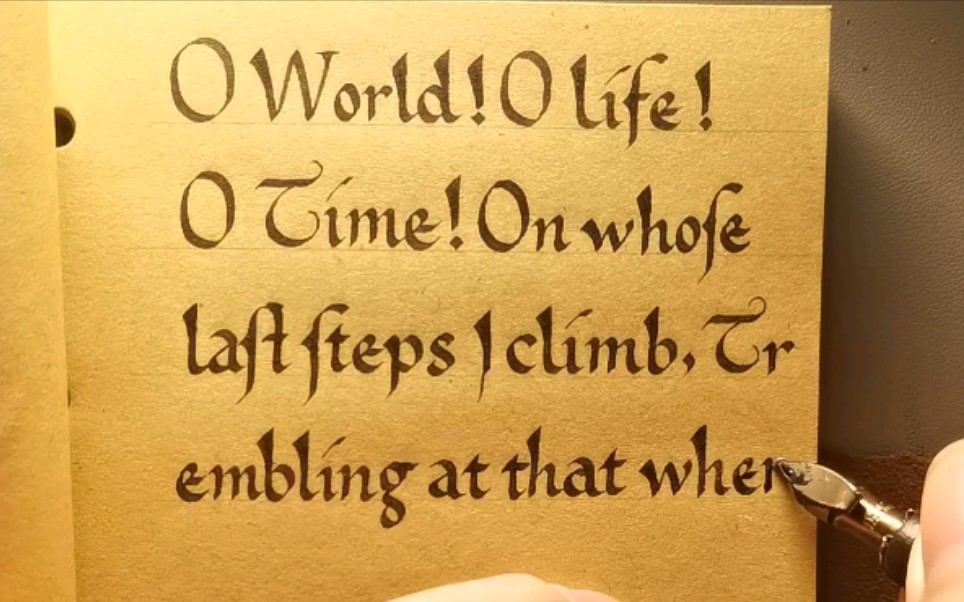 O World! O life!
O Time! On whoſe
laſt ſteps I climb, Tr
embling at that wher